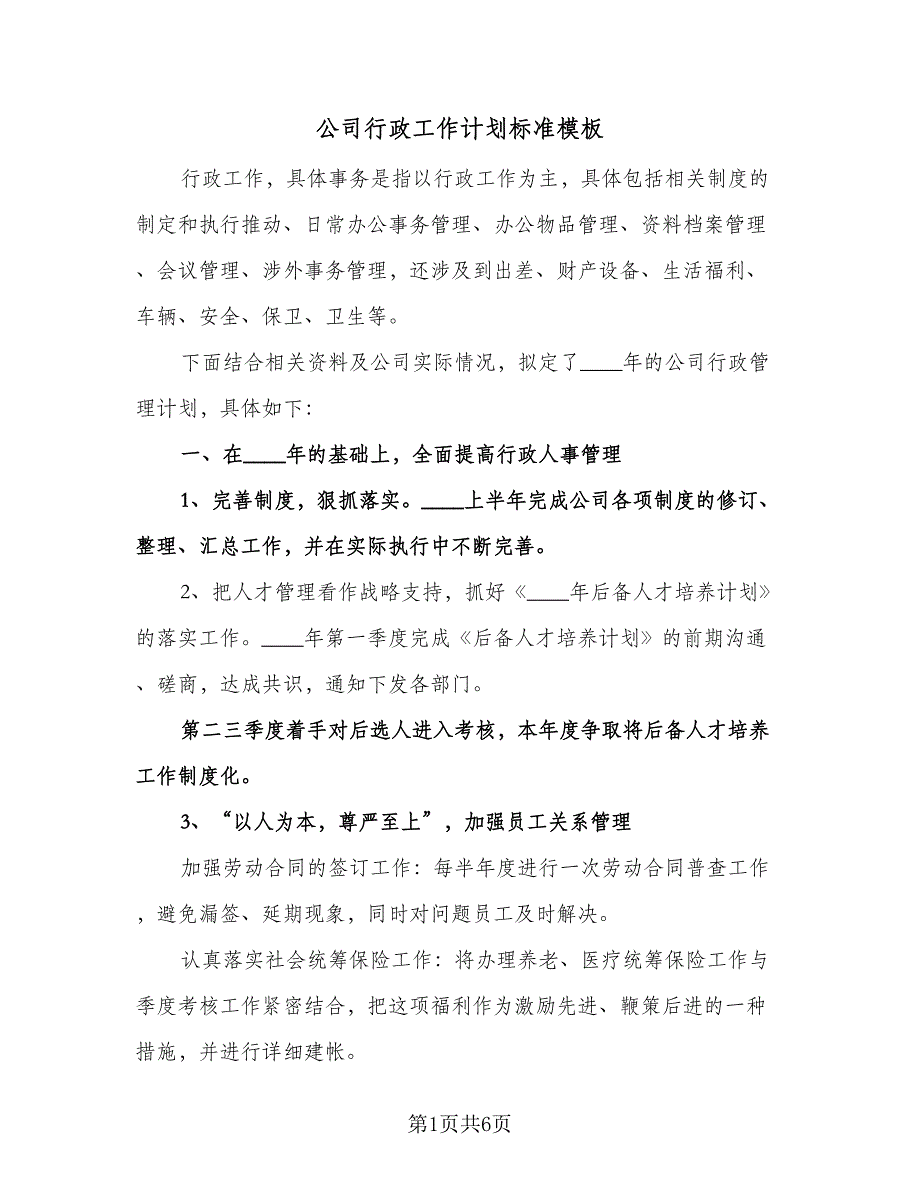 公司行政工作计划标准模板
行政工作，具体事务是指以行政工作为主，具体包括相关制度的
制定和执行推动、日常办公事务管理、办公物品管理、资料档案管理
、会议管理、涉外事务管理，还涉及到出差、财产设备、生活福利、
车辆、安全、保卫、卫生等。
下面结合相关资料及公司实际情况，拟定了____年的公司行政管
理计划，具体如下：
一、在____年的基础上，全面提高行政人事管理
1、完善制度，狠抓落实。____上半年完成公司各项制度的修订、
整理、汇总工作，并在实际执行中不断完善。
2、把人才管理看作战略支持，抓好《____年后备人才培养计划》
的落实工作。____年第一季度完成《后备人才培养计划》的前期沟通
、磋商，达成共识，通知下发各部门。
第二三季度着手对后选人进入考核，本年度争取将后备人才培养
工作制度化。
3、“以人为本，尊严至上”，加强员工关系管理
加强劳动合同的签订工作：每半年度进行一次劳动合同普查工作
，避免漏签、延期现象，同时对问题员工及时解决。
认真落实社会统筹保险工作：将办理养老、医疗统筹保险工作与
季度考核工作紧密结合，把这项福利作为激励先进、鞭策后进的一种
措施，并进行详细建帐。
第1页共6页